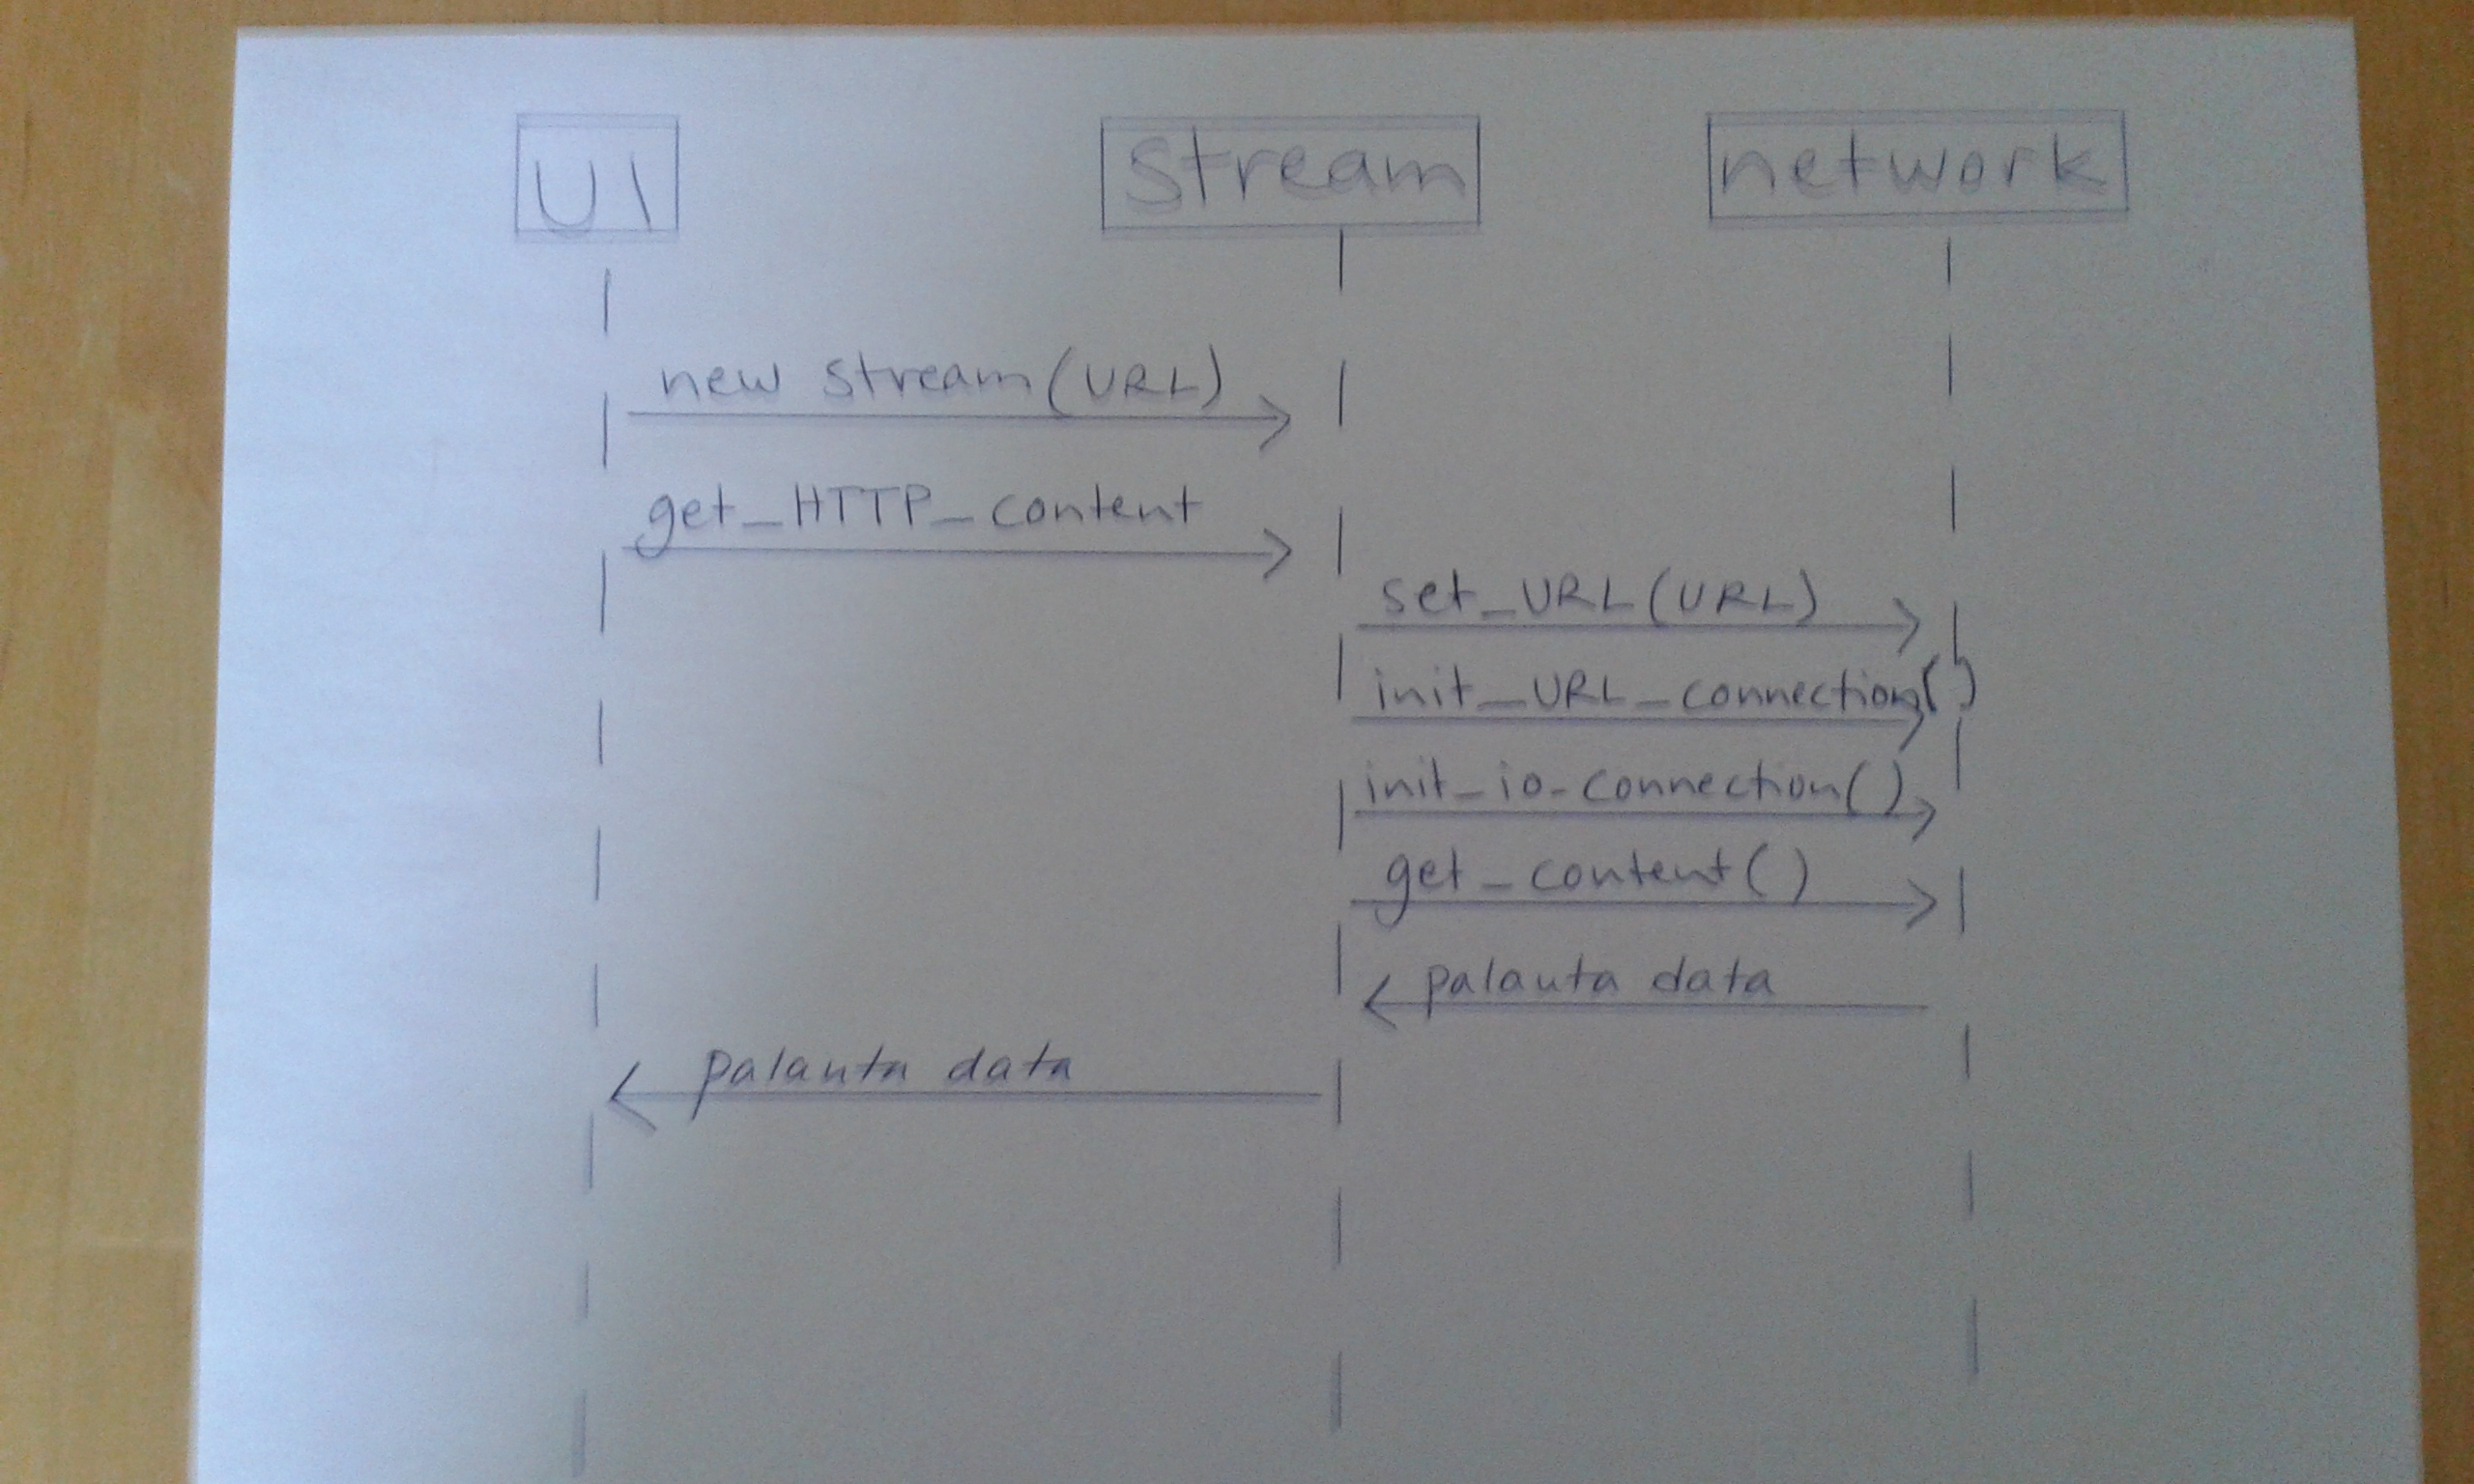 UI stream network
new stream(URL)
get_HTTP_content
set_URL(URL)
init_URL_connection()
init_io-connection()
get_content()
palauta data
palauta data